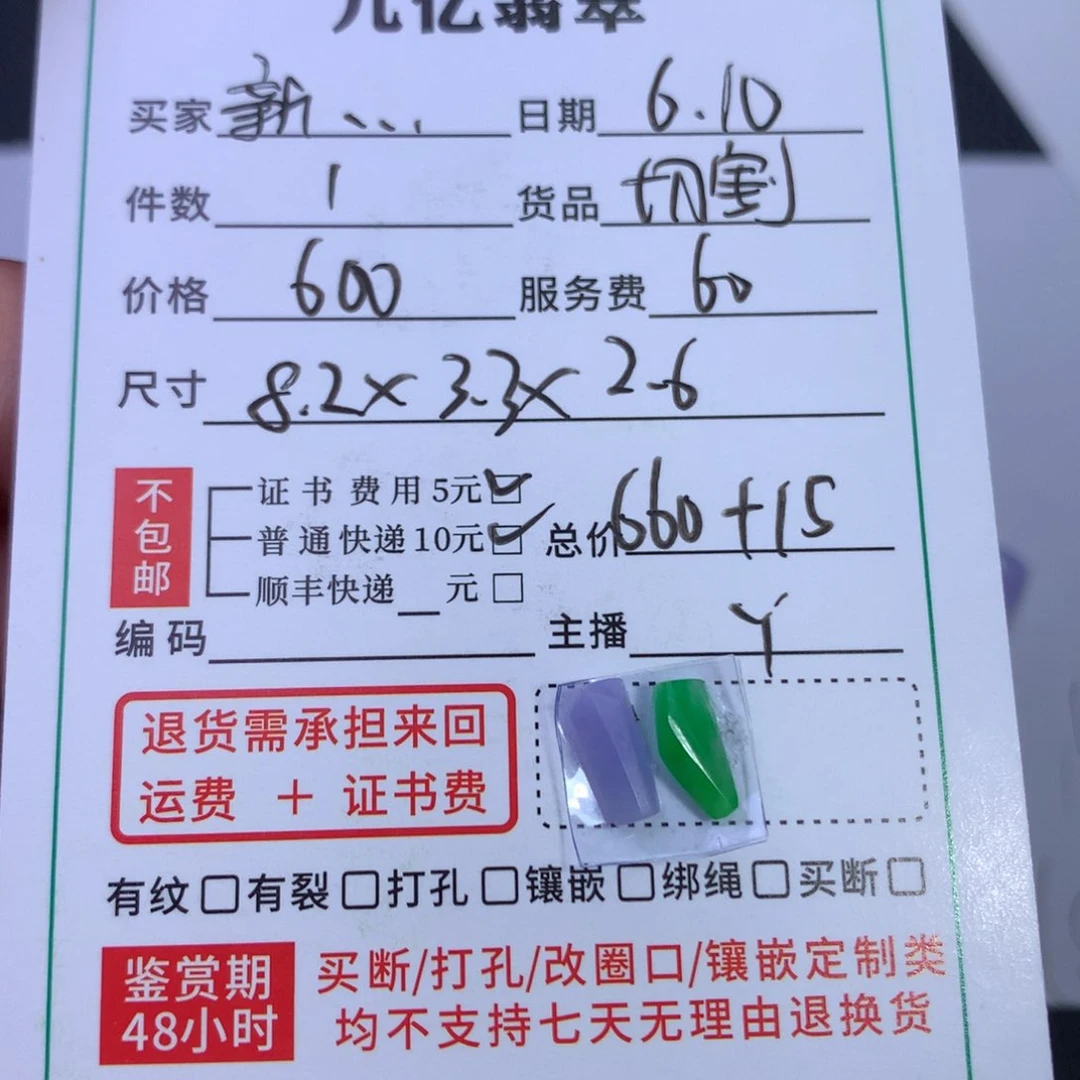 几亿翡翠
买家 新... 日期 6.10
件数 1 货品 切割
价格 600 服务费 60
尺寸 8.2×3.3×2.6
不包邮
证书费用5元☑
普通快递10元☑ 总价 660+15
顺丰快递__元□
编码 主播 Y
退货需承担来回
运费 + 证书费
有纹□有裂□打孔□镶嵌□绑绳□买断□
鉴赏期 买断/打孔/改圈口/镶嵌定制类
48小时 均不支持七天无理由退换货